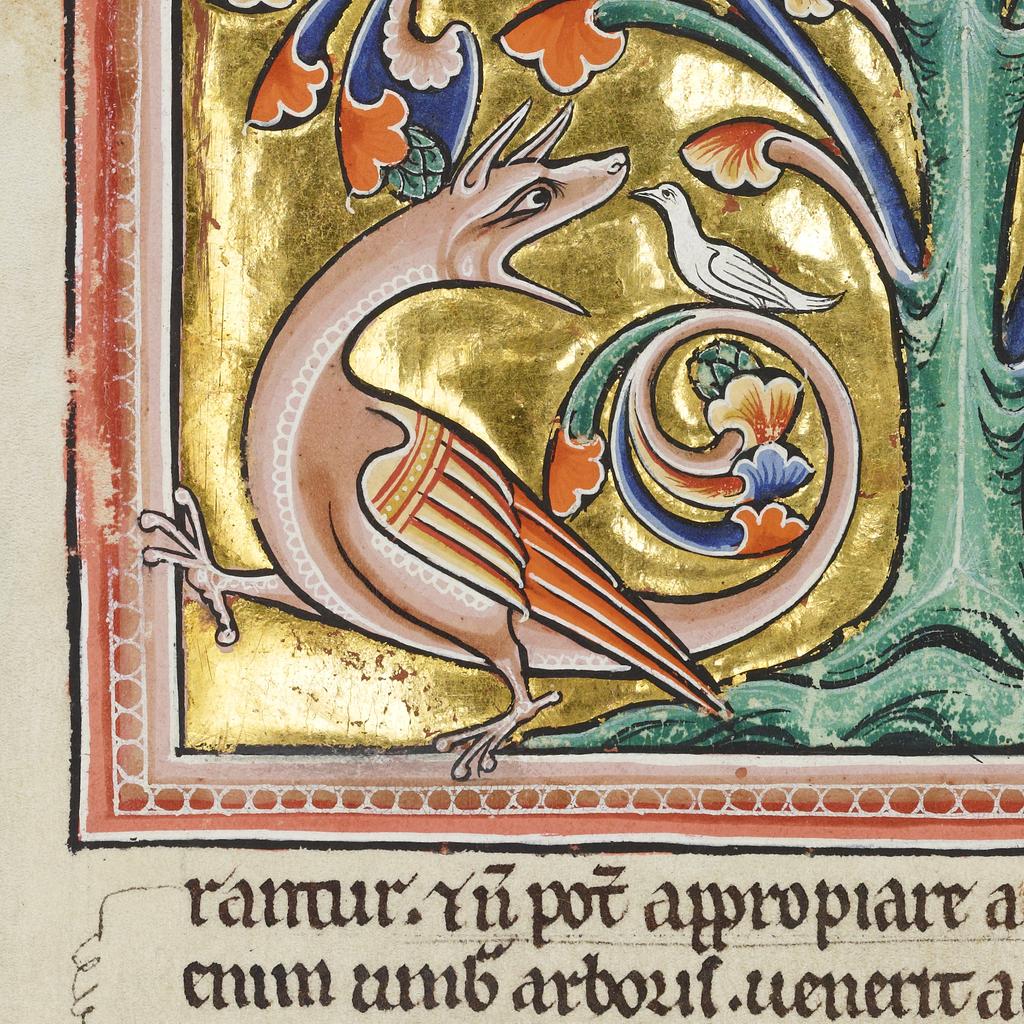 rantur. ⁊ ñ pot̄ appropiare a
enim umb̄ arboris. uenerit a